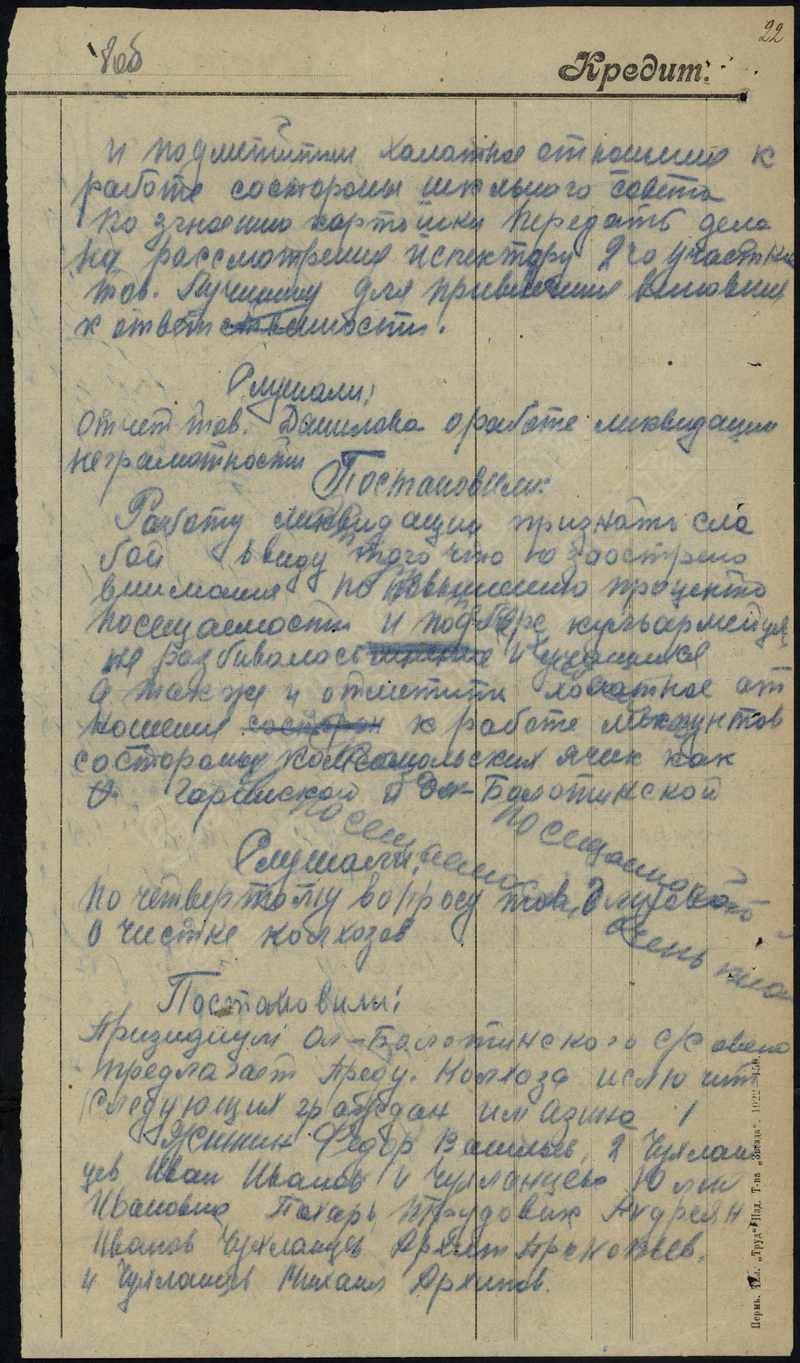 22
8об
Кредит.
и подметитьи халатное отношение к
работе состороны школьного совета
по згноению картошки передать дело
на рассмотрения Испектору 2го участка
тов. для привлечения виновних
к ответственности.
Слушали:
отчет тов. Данилова о работе ликвидации
неграмотности
Постановили:
Работу ликвидации признать сла
бой ввиду того что заострено
внимания по повышению проценто
посещаемости и подборе культармейцев
не разбивалось и учащихся
а также и отметить халатное от
ношения к работе ликпунтов
состороны комсомольских ячик как
Гаринской и Ол-Болотинской
посещаемость посещаемость
Слушали:
по четвертому вопросу тов.
о чистке колхозов
очень
Постановили:
Призидиум Ол-Болотинского с/совета
предлагает преду. Колхоза исключить
следующих граждан им Азина 1
Федор Васильев, 2 Чухлан
цев Иван Иванов и Чухланцева Юлия
Ивановна Пахарь Трудовик Андреян
Иванов Чухланцев Архип Прокопьев.
и Чухланцев Михаил Архипов.
Пермь. Тип. „Труд" Изд. Т-ва „Звезда". 1922